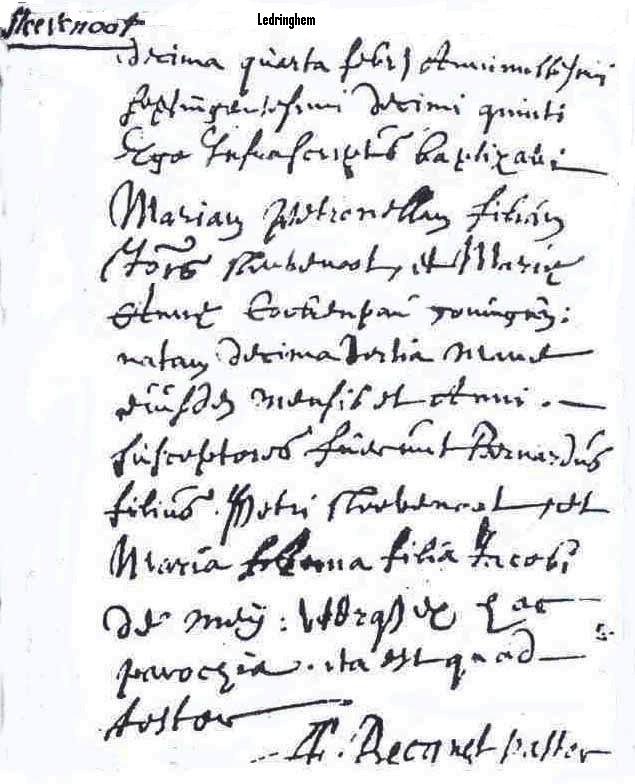 Steevenoot
Ledringhem
decima quarta febrj Anni millesimi
septingentesimi decimi quinti
Ego Infrascriptus baptizavi
Mariam Petronellam filiam
Steevenoot, et Mariæ
Annæ Conjugum:
natam decima tertia mane
eiusdem mensis et Anni. —
susceptores fuerunt Bernardus
filius Petri Steevenoot, et
Maria filia Jacobi
de Meÿ: uterqs ex hac
parochia. ita est quod
testor
pastor